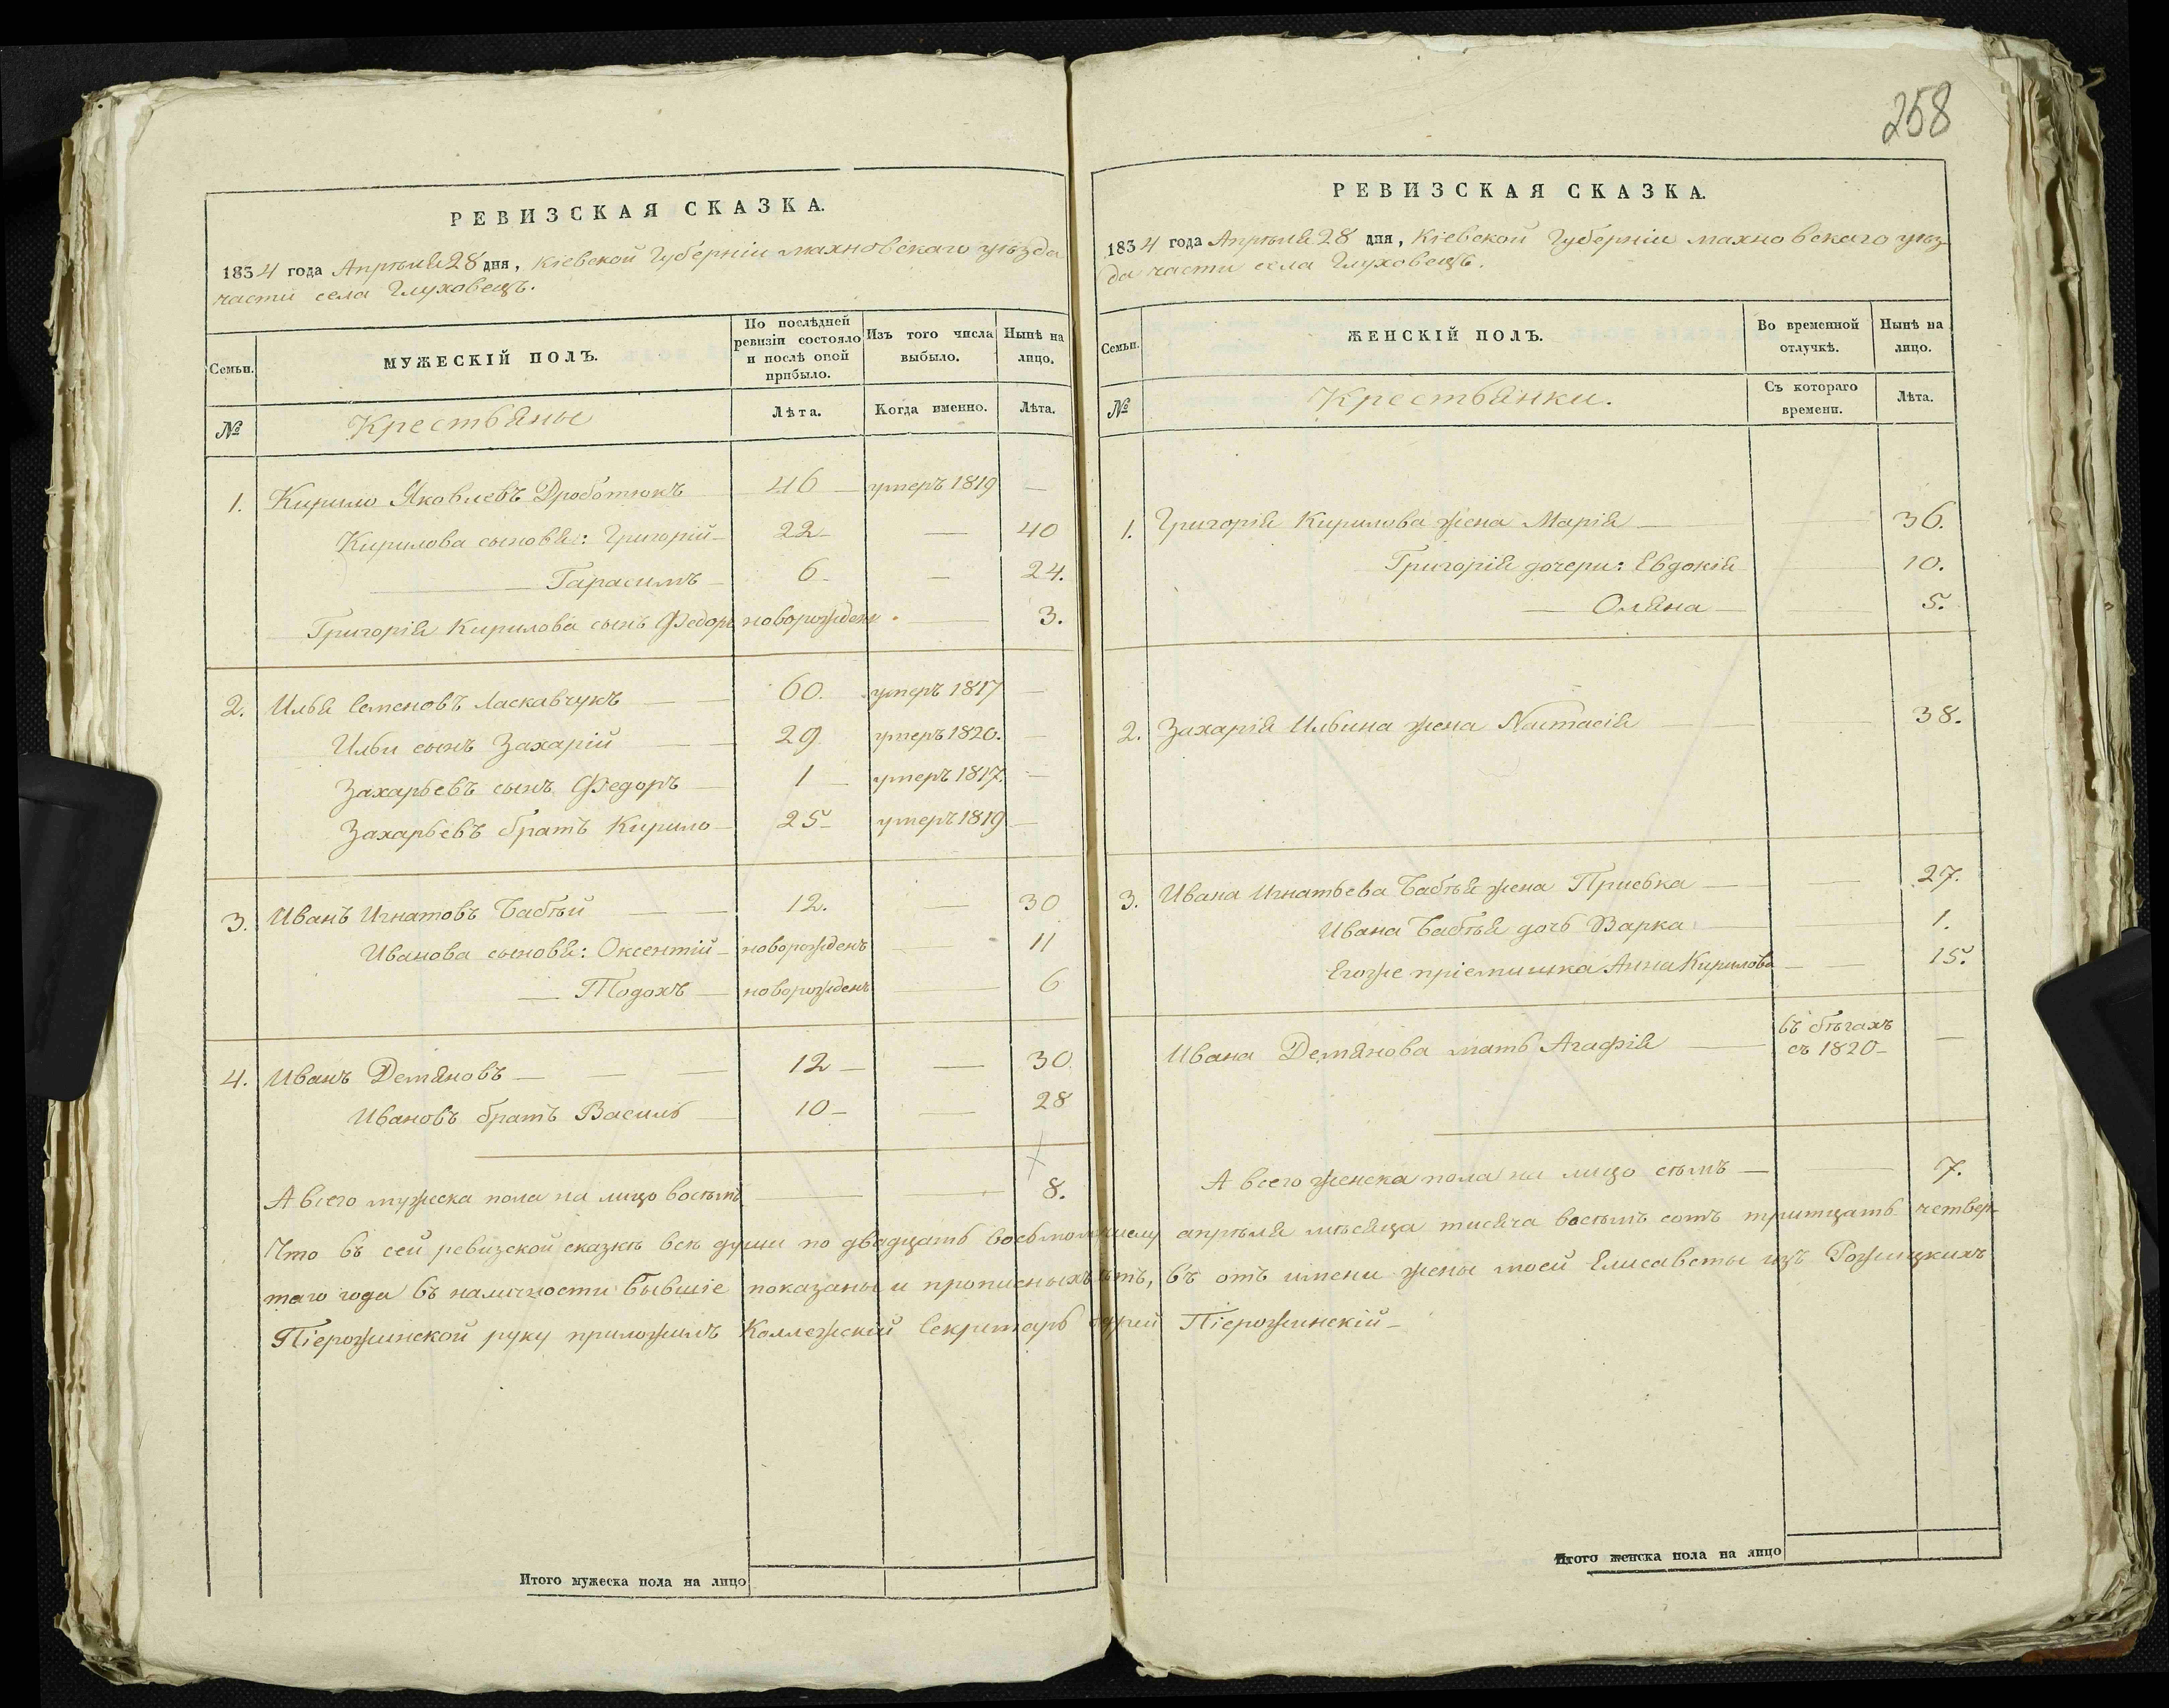 258
РЕВИЗСКАЯ СКАЗКА.
1834 года Апрѣля 28 дня, Кіевской Губерніи махновскаго уѣзда
части села Глуховецъ.
Семьи.
МУЖЕСКІЙ ПОЛЪ.
По послѣдней ревизіи состояло и послѣ оной прибыло.
Изъ того числа выбыло.
Нынѣ на лицо.
№
Крестьяны
Лѣта.
Когда именно.
Лѣта.
1. Кирило Яковлевъ Дроботюкъ 46 — умеръ 1819 —
Кирилова сыновя: Григорій — 22 — — 40
— Гарасимъ — 6 — — 24.
Григорія Кирилова сынъ Федоръ новорожденъ . — 3.
2. Илья Семеновъ Ласкавчукъ — 60. умеръ 1817 —
Ильи сынъ Захарій — 29 умеръ 1820. —
Захарьевъ сынъ Федоръ — 1 — умеръ 1817. —
Захарьевъ братъ Кирило — 25 — умеръ 1819 —
3. Иванъ Игнатовъ Бабѣй — 12. — 30
Иванова сыновя: Оксентій — новорожденъ — 11
— Тодохъ — новорожденъ — 6
4. Иванъ Демяновъ — — — 12 — — 30
Ивановъ братъ Василь — 10 — — 28
А всего мужеска пола на лицо восѣмъ — — 8.
Итого мужеска пола на лицо
РЕВИЗСКАЯ СКАЗКА.
1834 года Апрѣля 28 дня, Кіевской Губерніи махновскаго уѣз-
да части села Глуховецъ.
Семьи.
ЖЕНСКІЙ ПОЛЪ.
Во временной отлучкѣ.
Нынѣ на лицо.
№
Крестьянки.
Съ котораго времени.
Лѣта.
1. Григорія Кирилова жена Марія — — 36.
Григорія дочери: Евдокія — 10.
— Оляна — — 5.
2. Захарія Ильина жена Настасія — — 38.
3. Ивана Игнатьева Бабѣя жена Приська — — 27.
Ивана Бабѣя дочь Варка — — 1.
Егоже пріемишка Анна Кирилова — — 15.
Ивана Демянова мать Агафія — въ бѣгахъ съ 1820 — —
А всего женска пола на лицо сѣмъ — — 7.
Что въ сей ревизской сказкѣ всѣ души по двадцать восьмое число апрѣля мѣсяца тисяча восѣмъ сотъ тритцать четвер-
таго года въ наличности бывшіе показаны и прописныхъ нѣтъ, въ отъ имени жены моей Елисаветы изъ Рожицкихъ
Піерожинской руку приложилъ Коллежскій Секритарь Піерожинскій —
Итого женска пола на лицо